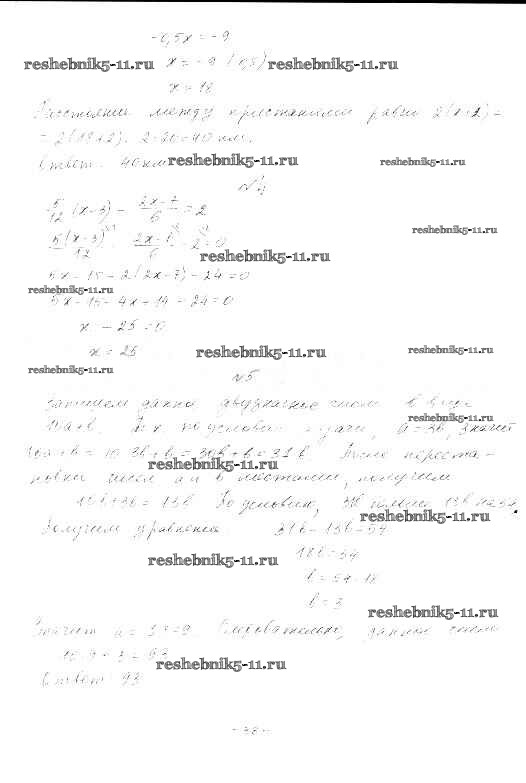 -0,5x = -9
reshebnik5-11.ru x = -9 : (-0,5) reshebnik5-11.ru
x = 18
Расстояние между пристанями равно 2(x+2) =
= 2(18+2) = 2·20 = 40 км.
Ответ: 40 км reshebnik5-11.ru reshebnik5-11.ru
№4
5/12 (x-3) - (2x-7)/6 = 2
reshebnik5-11.ru
5(x-3)/12 - (2x-7)/6 - 2 = 0
reshebnik5-11.ru
5x - 15 - 2(2x-7) - 24 = 0
reshebnik5-11.ru
5x - 15 - 4x + 14 - 24 = 0
x - 25 = 0
x = 25 reshebnik5-11.ru reshebnik5-11.ru
reshebnik5-11.ru
№5
запишем данное двузначное число в виде
reshebnik5-11.ru
10a+b. Т.к. по условию задачи, a = 3b, значит
10a+b = 10·3b+b = 30b+b = 31b. После переста-
reshebnik5-11.ru
новки чисел a и b местами, получим
10b+3b = 13b. По условию, 31b больше 13b на 54.
reshebnik5-11.ru
Получим уравнение: 31b - 13b = 54
18b = 54
reshebnik5-11.ru
b = 54:18
b = 3
reshebnik5-11.ru
Значит a = 3·3 = 9. Следовательно, данное число
10·9+3 = 93
reshebnik5-11.ru
Ответ: 93
- 38 -